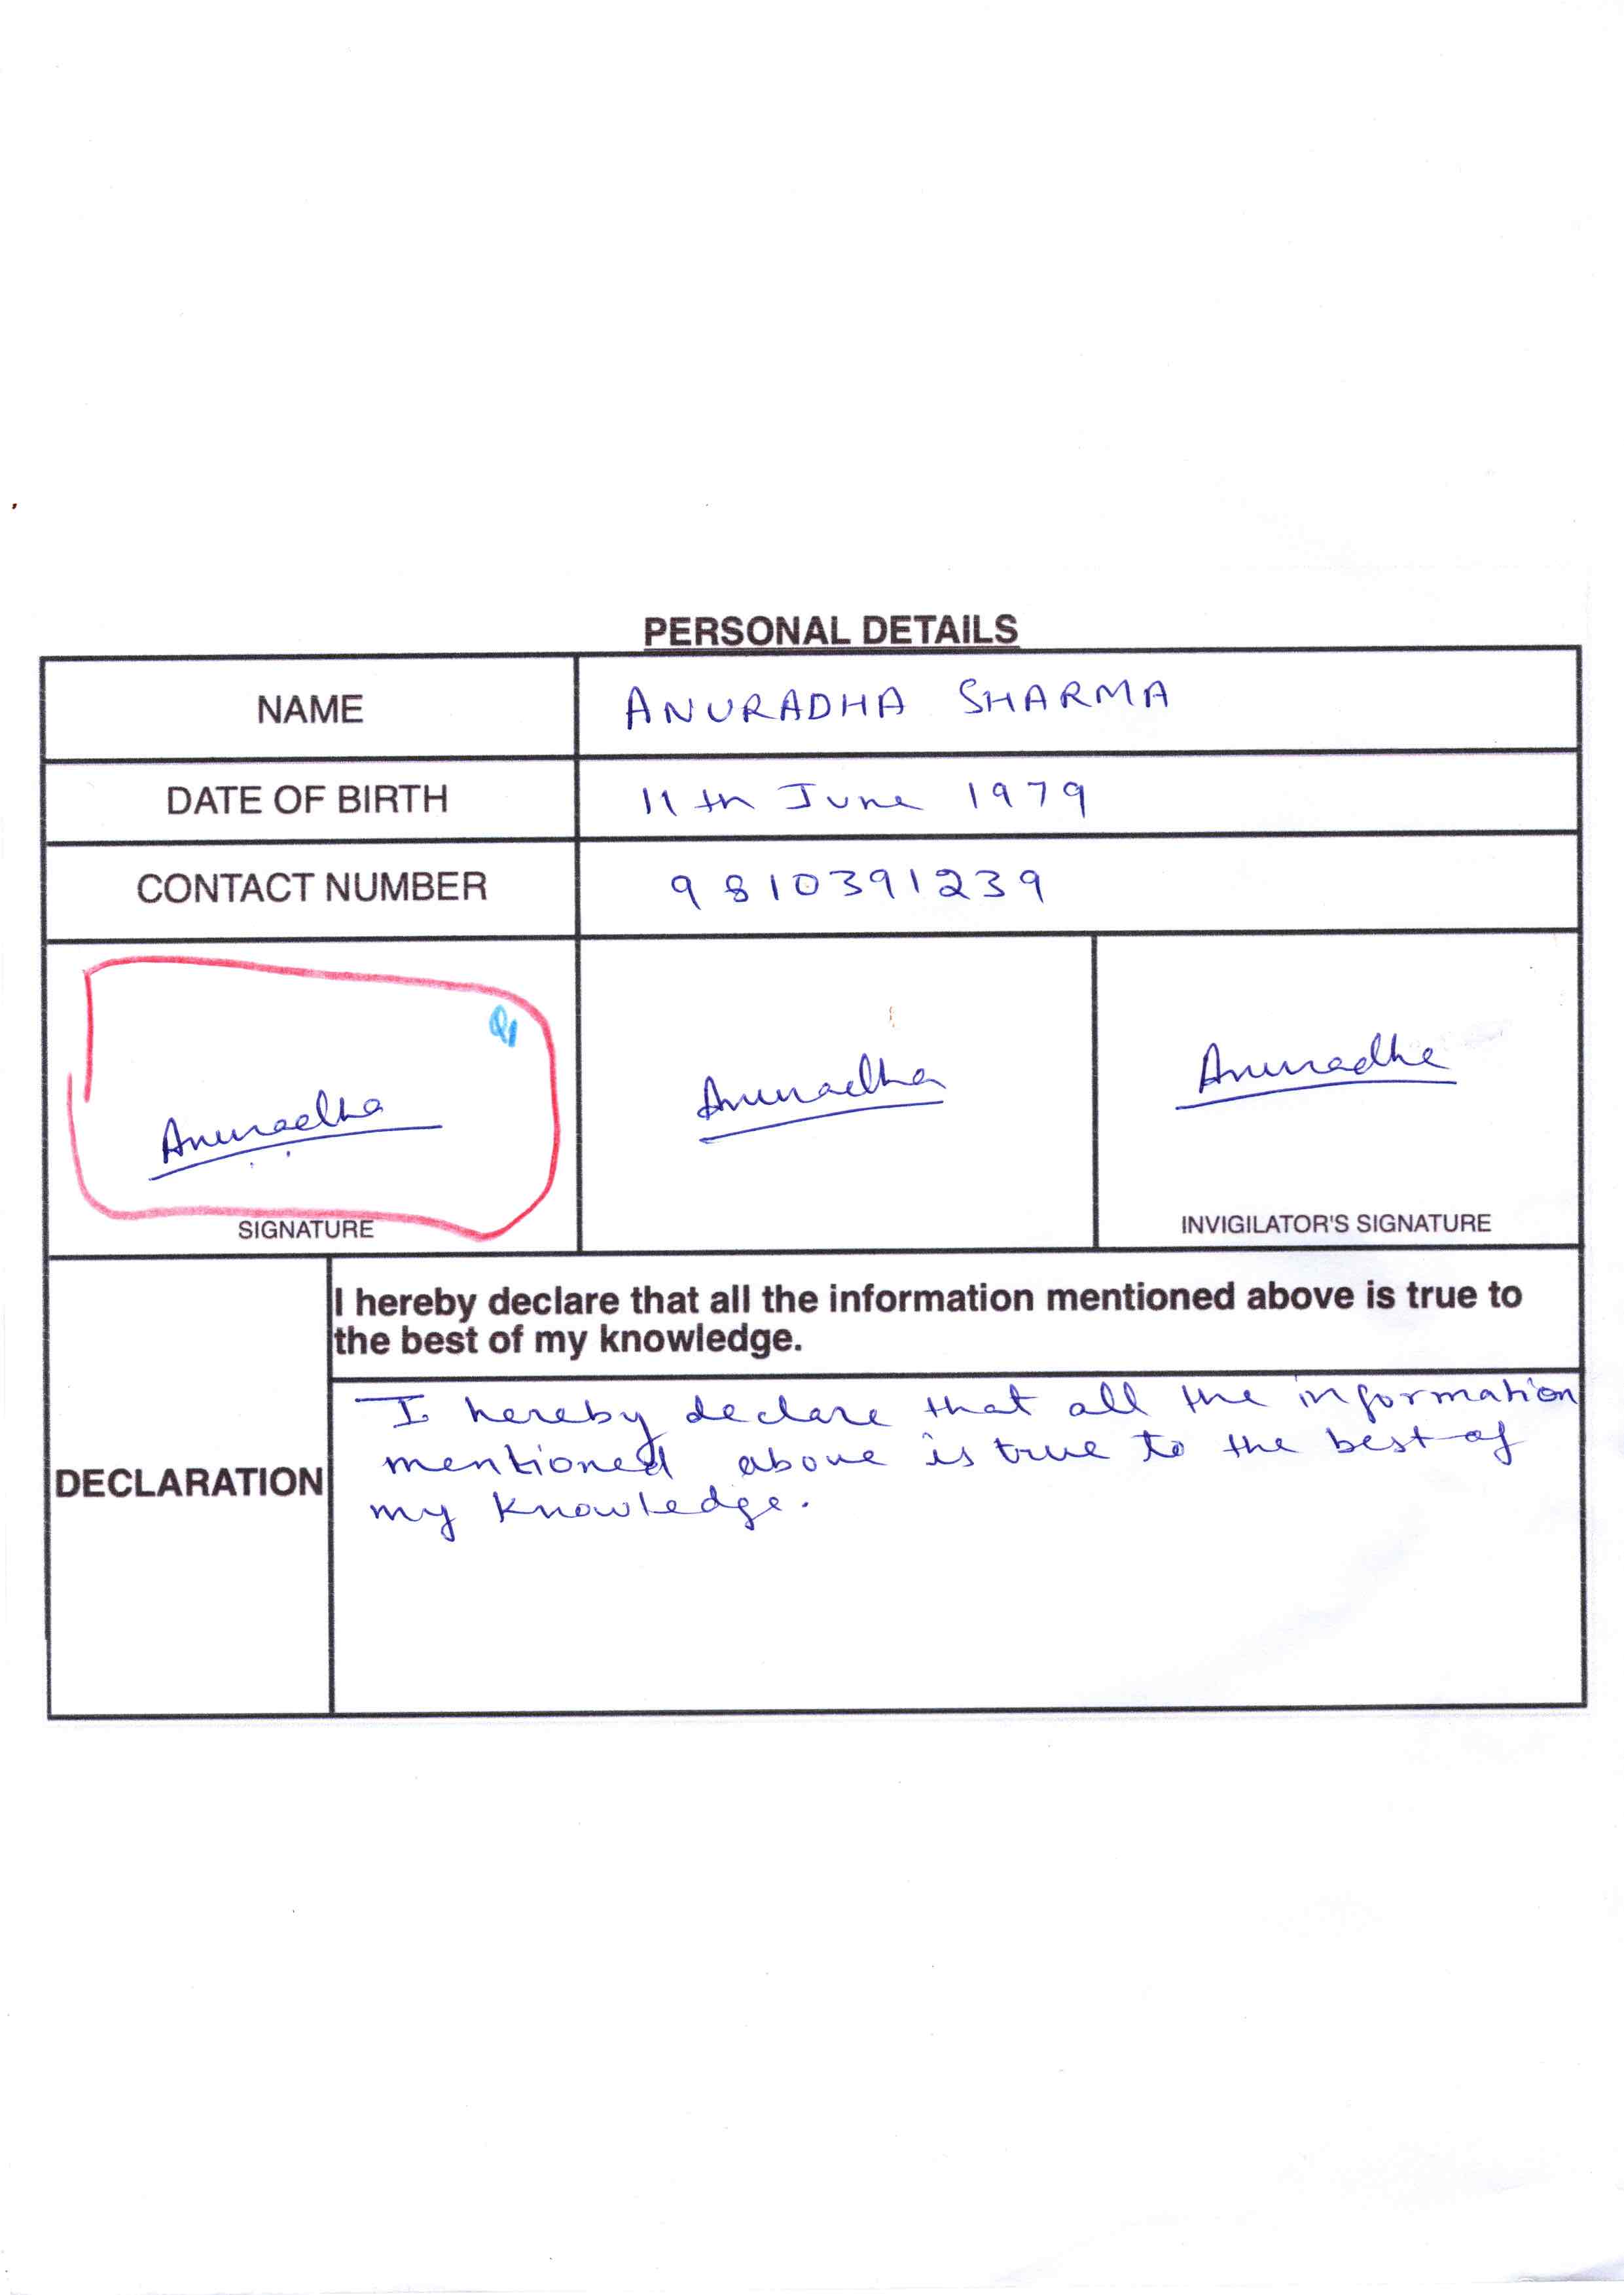 PERSONAL DETAILS
NAME ANURADHA SHARMA
DATE OF BIRTH 11th June 1979
CONTACT NUMBER 9810391239
Q1
Anuradha Anuradha Anuradha
SIGNATURE INVIGILATOR'S SIGNATURE
I hereby declare that all the information mentioned above is true to
the best of my knowledge.
I hereby declare that all the information
mentioned above is true to the best of
DECLARATION
my knowledge.